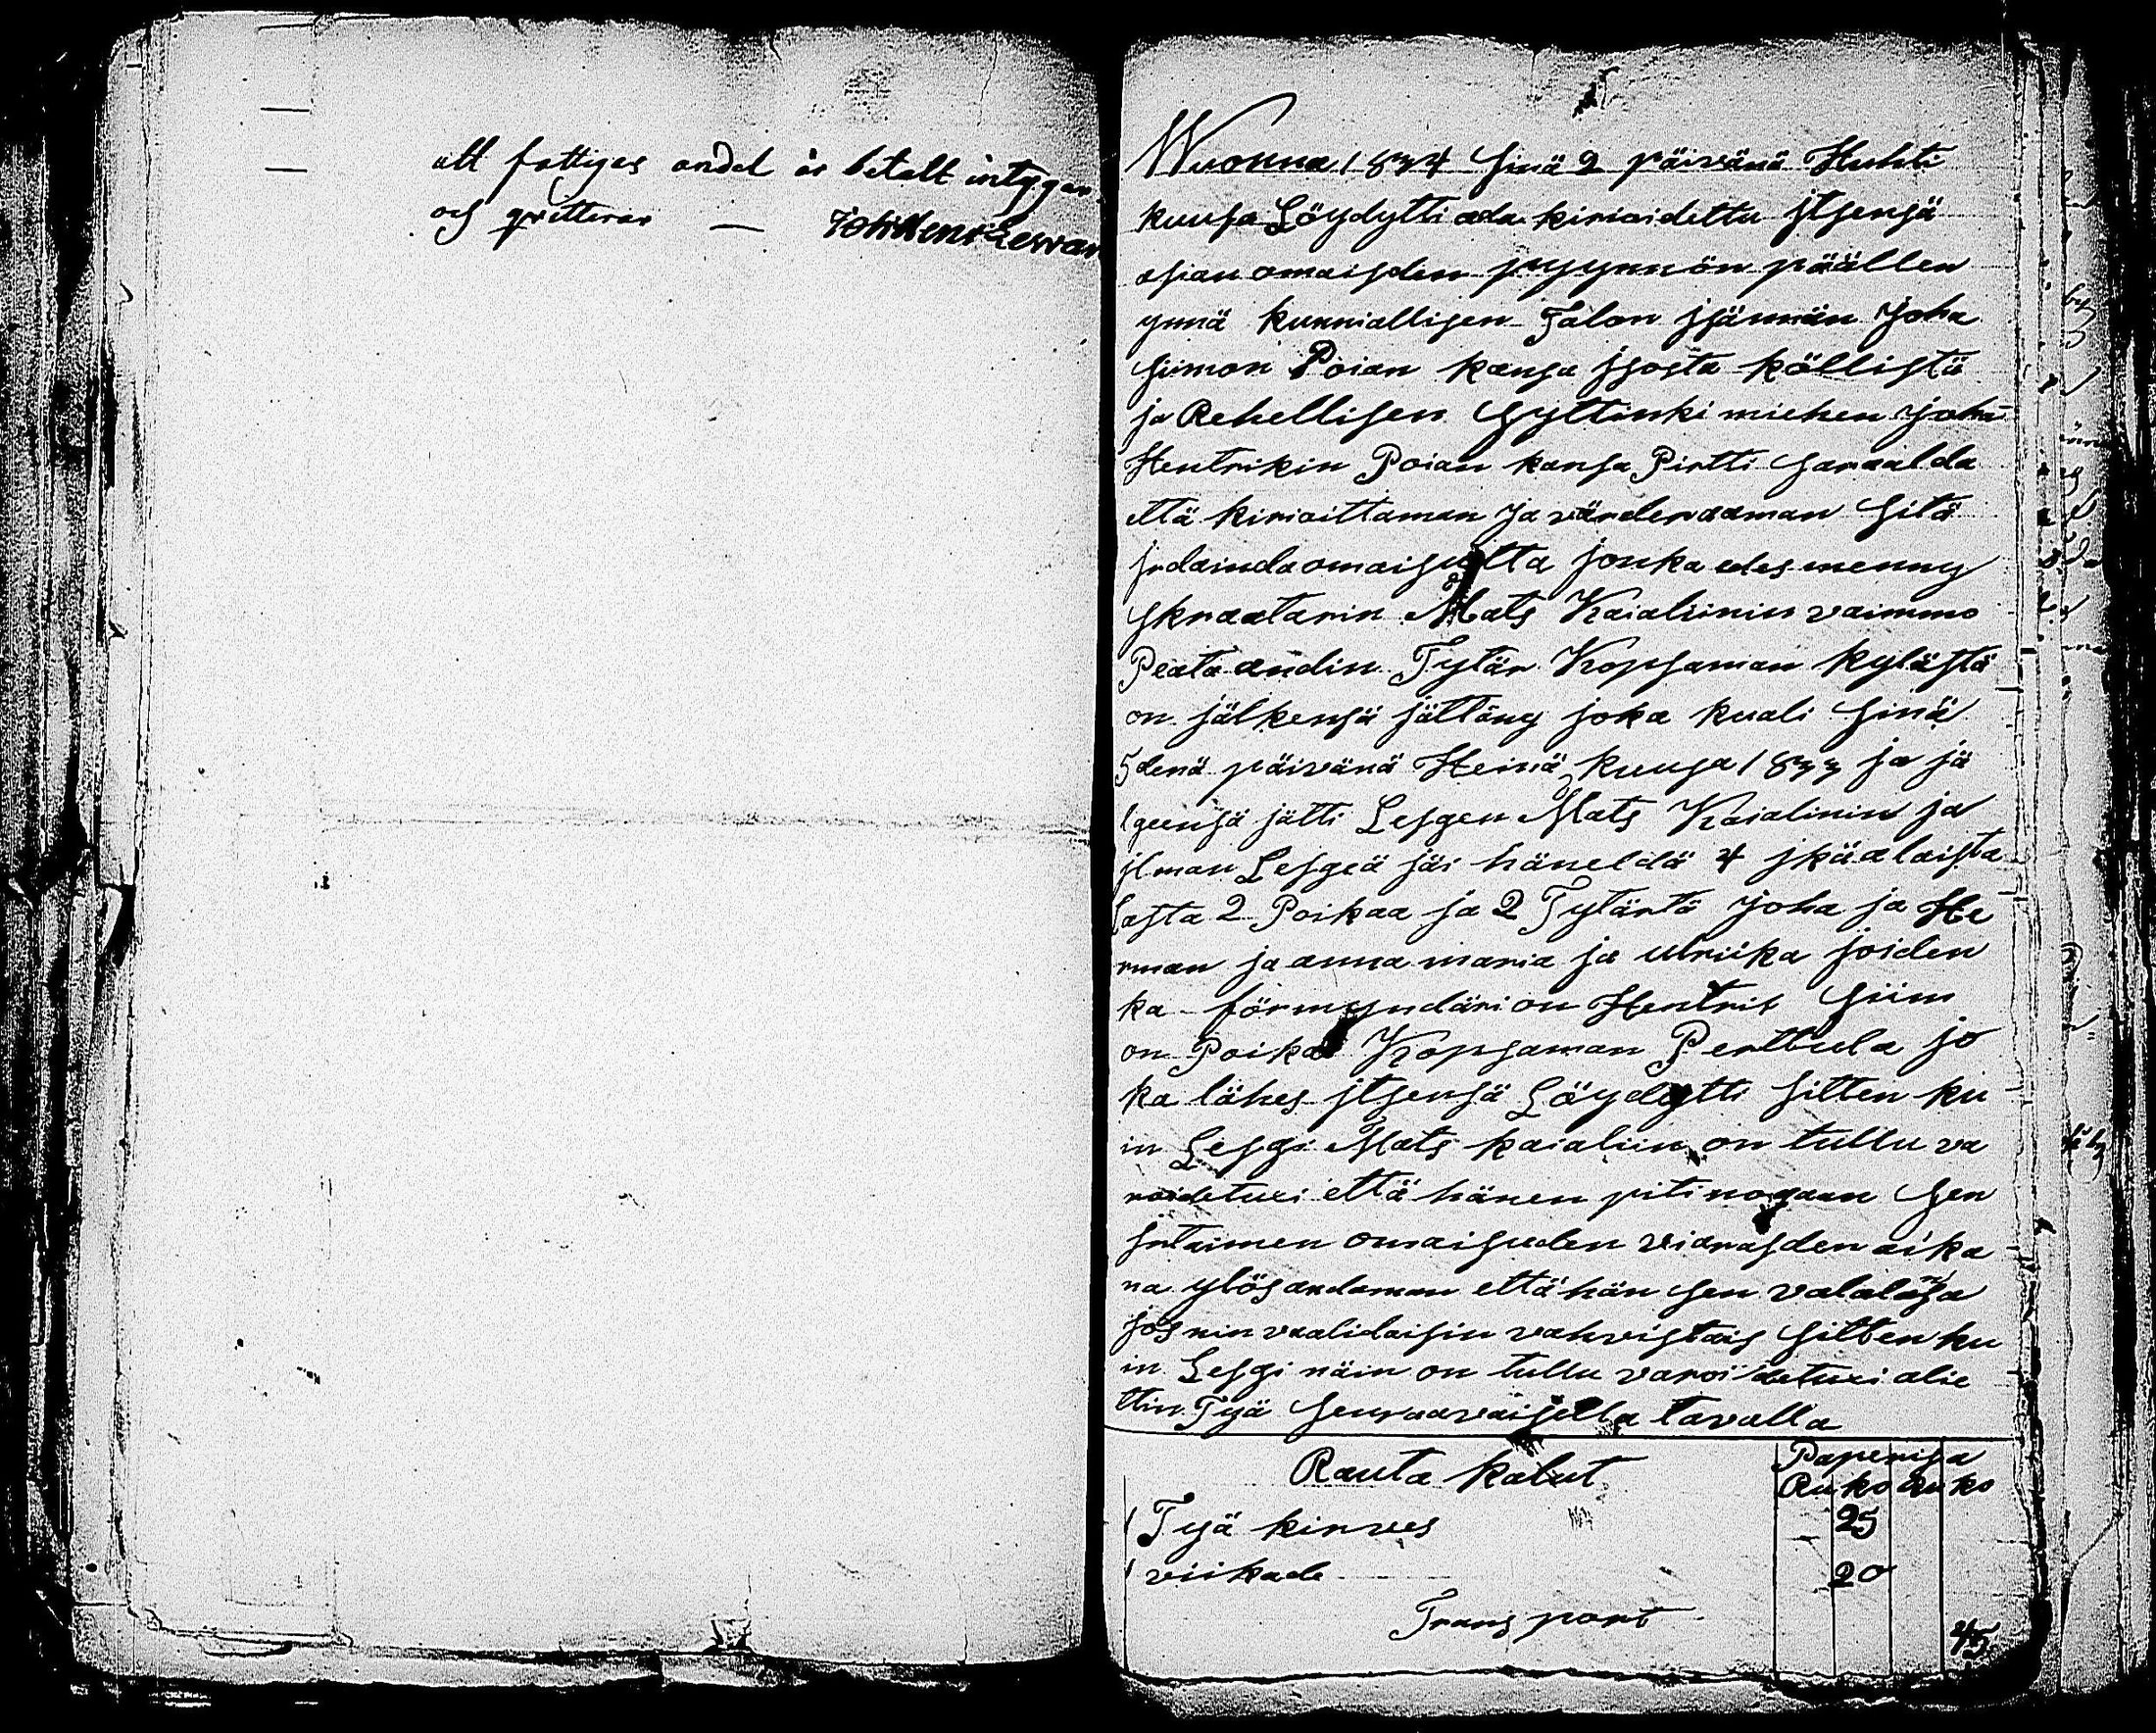 att fattiges andel är betalt intygar
och qvitterar —
Wuonna 1834 sinä 2 päivänä Huhti
kuusa Löydytti ala kirioidettu jtsensä
asian omaisden pyynnön päällen
ynnä kunniallisen Talon jsännän Joha
Simon Poian kansa jsosta källistä
ja Rehellisen Syltinki miehen Joha
Hentrikin Poian kansa Pirtti saraalda
että kirioittaman ja värderaaman sitä
jrdainda omaisutta jonka edes menny
skraatarin Mats Kaialiinin vaimmo
Peata andin Tytär Kopsaman kylästä
on jälkensä jättäny joka kuali sinä
5 denä päivänä Heinä kuusa 1833 ja jä
lgeensä jätti Lesgen Mats Kaialinin ja
jlman Lesgeä jäi häneldä 4 jkäalaista
lasta 2 Poikaa ja 2 Tytärtä Joha ja He
rman ja anna maria ja ulriika joiden
ka förmyndäri on Hentrik Siim
on Poika Kopsaman Perttula jo
ka lähes jtsensä Löydytti sitten ku
in Lesgi Mats kaialiin on tullu va
roidetuxi että hänen piti nogaan sen
jrtaimen omaisuden vierasden aika
na ylösandaman että hän sen valalansa
jos nin vaalidaisin vahvistais sitten ku
in Lesgi näin on tullu varoidetuxi alie
ttin Työ seuraavaisella tavalla
Rauta kalut Paperisa
Ru ko Ru ko
1 Työ kirves — 25
1 viikade 20
Transport 45